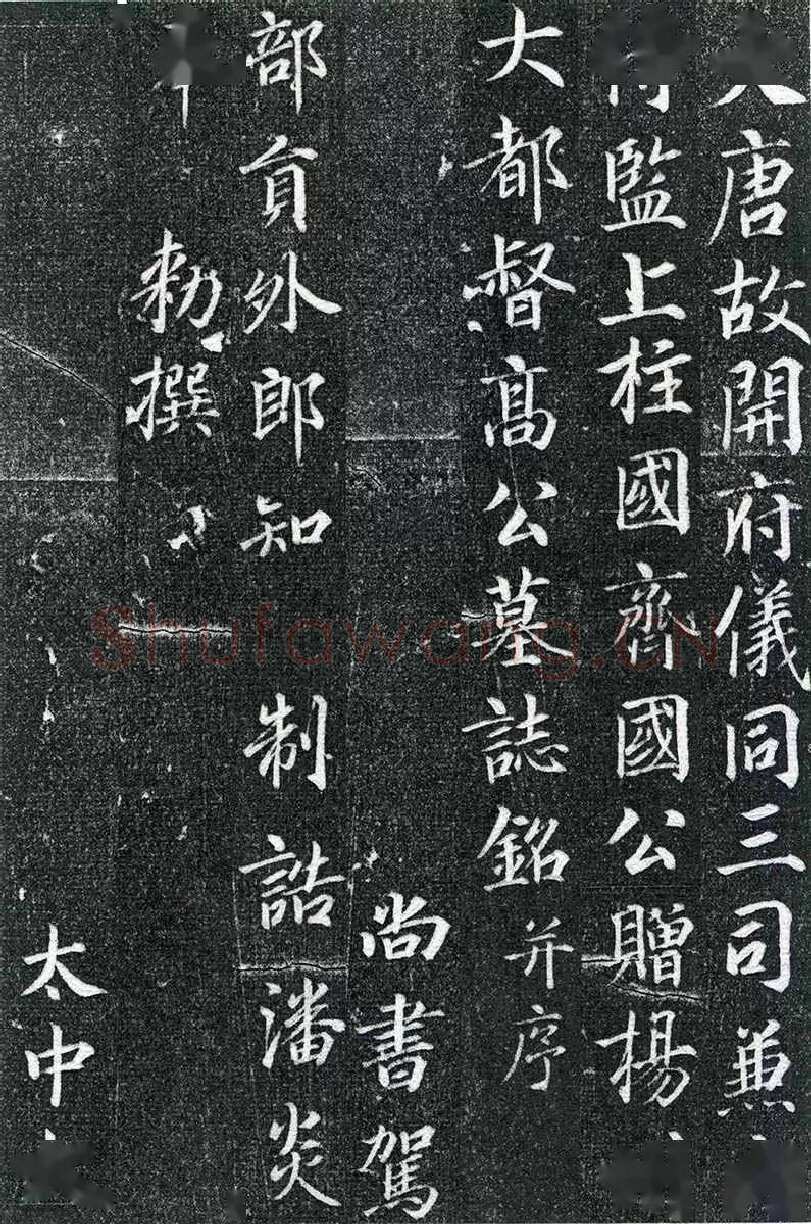 唐故開府儀同三司兼
監上柱國齊國公贈楊
大都督髙公墓誌銘并序
尚書駕
部員外郎知制誥潘炎
奉
勑撰
太中
Shufawang.CN